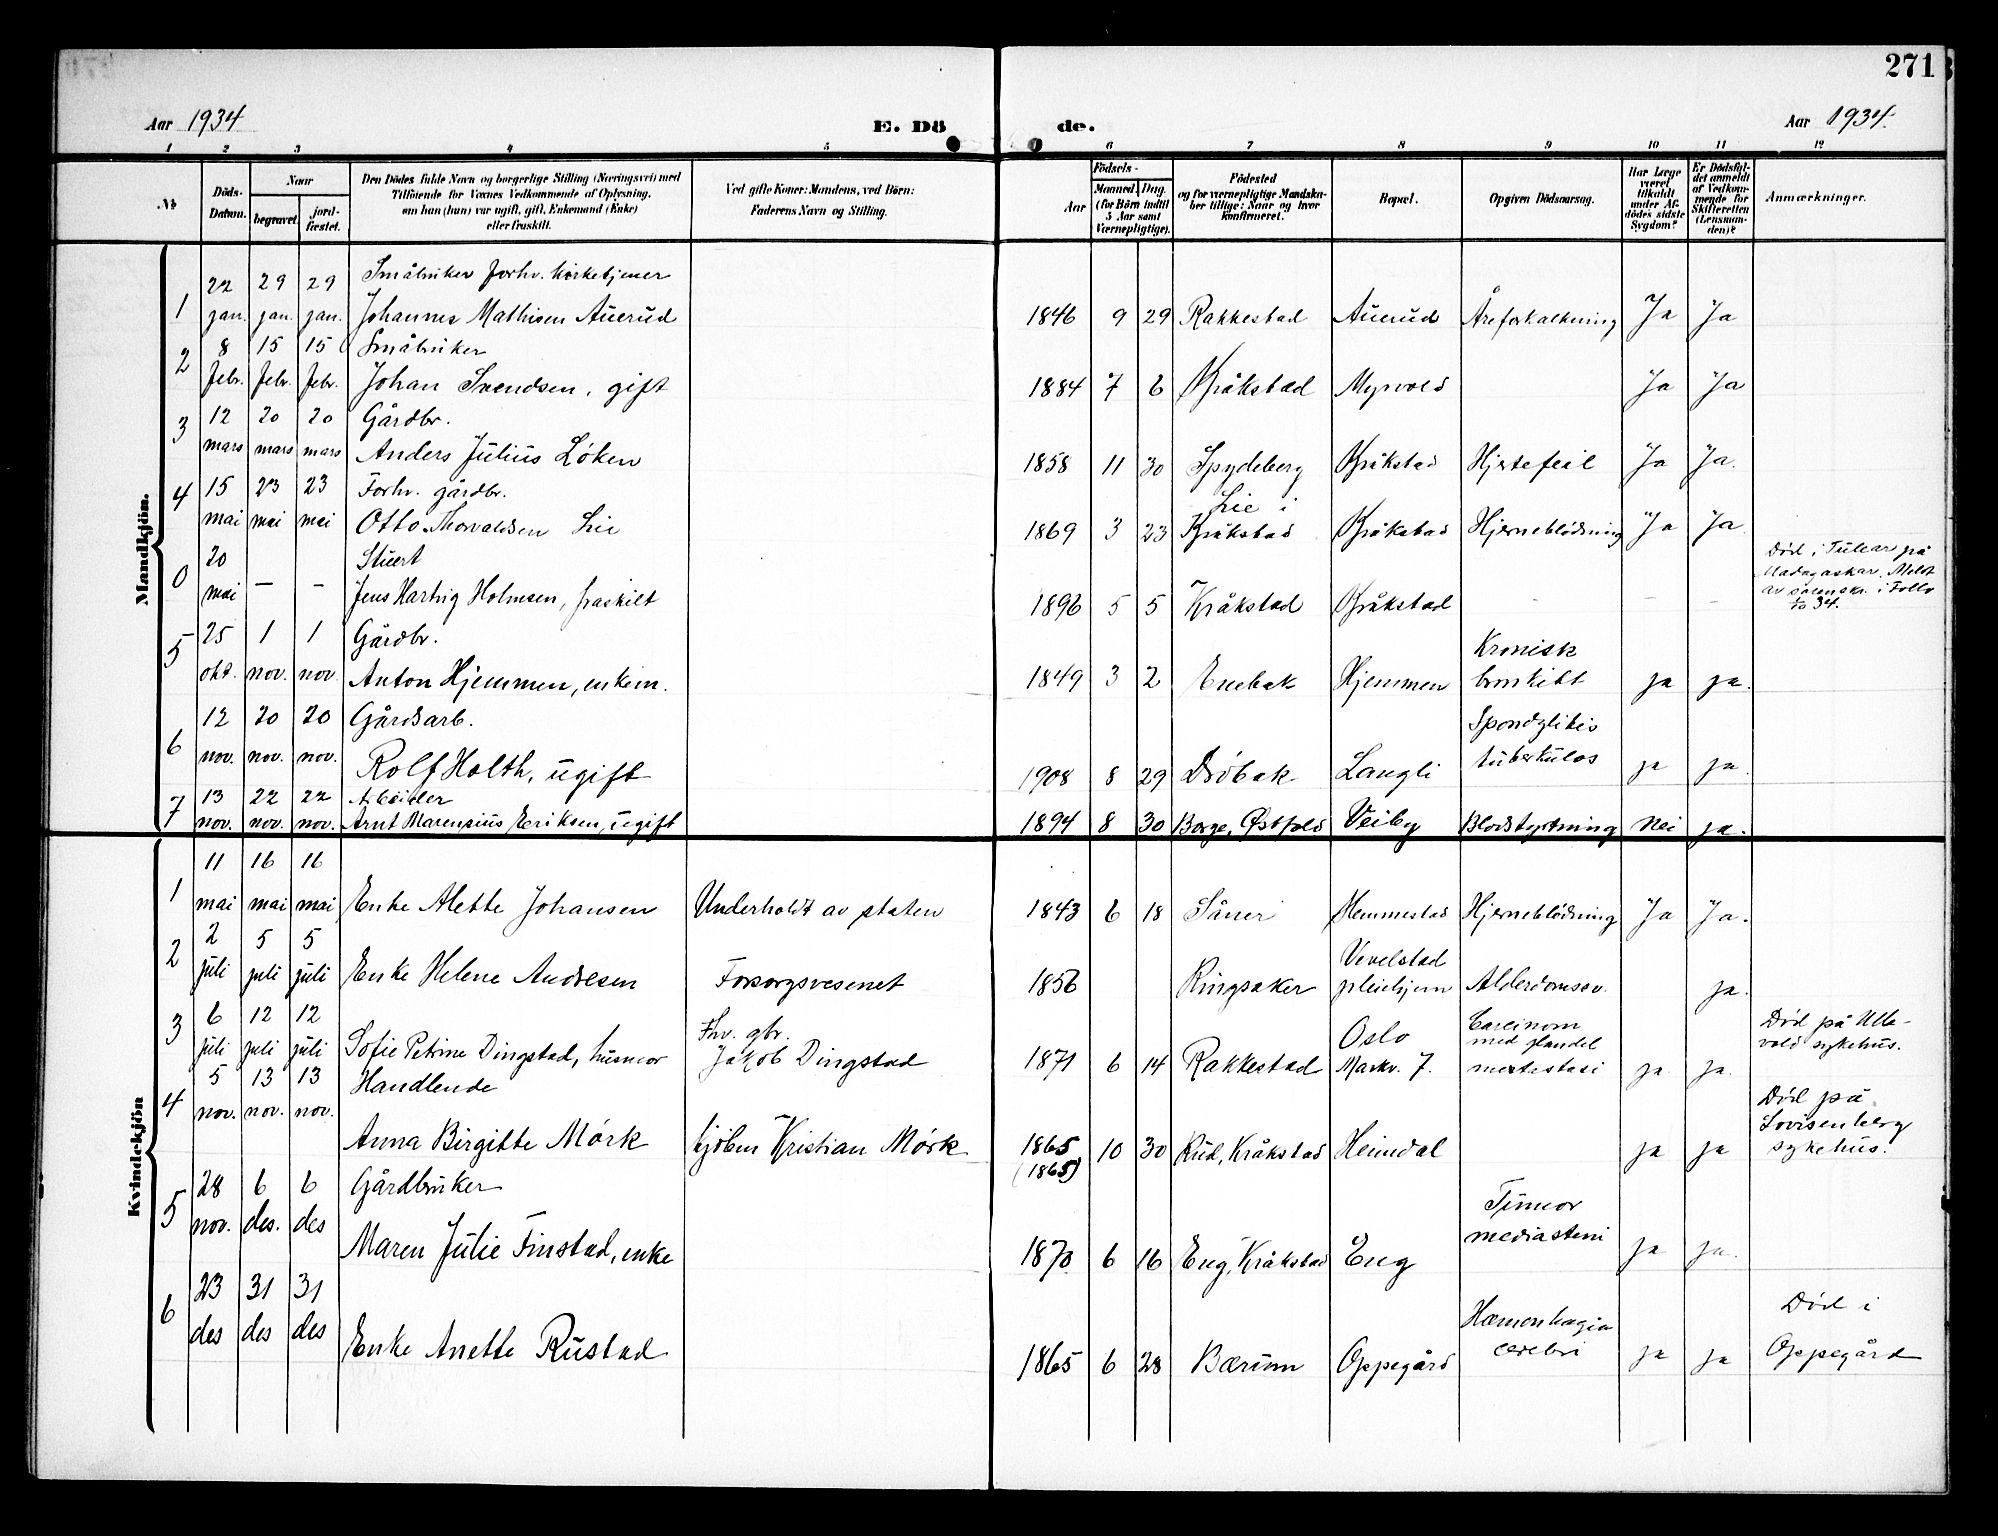 271
Aar 1934
E. Dö
de.
Aar 1934.
1 2 3 4 5 6 7 8 9 10 11 12
№
Döds-
Datum.
Naar
begravet.
jord-
fæstet.
Den Dödes fulde Navn og borgerlige Stilling (Næringsvei) med
Tilföiende for Voxnes Vedkommende af Oplysning,
om han (hun) var ugift, gift, Enkemand (Enke)
eller fraskilt.
Ved gifte Koner: Mandens, ved Börn:
Faderens Navn og Stilling.
Födsels-
Aar
Maaned. Dag.
(for Börn indtil
5 Aar samt
Værnepligtige).
Födested
og for værnepligtige Mandska-
ber tillige: Naar og hvor
konfirmeret.
Bopæl.
Opgiven Dödsaarsag.
Har Læge
været
tilkaldt
under Af-
dödes sidste
Sygdom?
Er Dödsfal-
det anmeldt
af Vedkom-
mende for
Skifteretten
(Lensman-
den)?
Anmærkninger.
Mandkjön.
22 29 29 Småbruker forhv. kirketjener
1 jan. jan. jan. Johannes Mathisen Auerud 1846 9 29 Rakkestad Auerud Åreforkalkning Ja Ja
8 15 15 Småbruker
2 febr. febr. febr. Johan Svendsen, gift 1884 7 6 Kråkstad Myrvold Ja Ja
12 20 20 Gårdbr.
3 mars mars mars Anders Julius Löken 1858 11 30 Spydeberg Kråkstad Hjertefeil Ja Ja.
15 23 23 Forhv. gårdbr. Lie i
4 mai mai mai Otto Thorvaldsen Lie 1869 3 23 Kråkstad Kråkstad Hjerneblödning Ja Ja
20 Stuert
0 mai – – Jens Hartvig Holmsen, fraskilt 1896 5 5 Kråkstad Kråkstad – – –
Död i Tulear på
Madagaskar. Meldt
av sorenskr. i Follo
34.
25 1 1 Gårdbr. Kronisk
5 okt. nov. nov. Anton Hjemmen, enkem. 1849 3 2 Enebak Hjemmen bronkitt ja ja.
12 20 20 Gårdsarb. Spondylitis
6 nov. nov. nov. Rolf Holth, ugift 1908 8 29 Dröbak Langli tuberkulos ja ja.
13 22 22 Arbeider
7 nov. nov. nov. Arnt Marensius Eriksen, ugift 1894 8 30 Borge, Østfold Veiby Blodstyrtning Nei ja.
Kvindekjön
11 16 16
1 mai mai mai Enke Alette Johansen Underholdt av staten 1843 6 18 Såner Hemmestad Hjerneblödning Ja Ja.
2 5 5 Vevelstad
2 juli juli juli Enke Helene Andresen Forsorgsvesenet 1856 Ringsaker pleiehjem Alderdomssv. ja.
6 12 12 Fhv. gbr. Oslo Carcinom
med glandel
3 juli juli juli Sofie Petrine Dingstad, husmor Jakob Dingstad 1871 6 14 Rakkestad Markv. 7. metastasi ja ja.
Död på Ulle-
vold sykehus.
5 13 13 Handlende
4 nov. nov. nov. Anna Birgitte Mörk kjöbm Kristian Mörk 1865 10 30 Rud, Kråkstad Heimdal ja ja
(1865)
Död på
Lovisenberg
sykehus.
28 6 6 Gårdbruker Tumor
5 nov. des. des Maren Julie Finstad, enke 1870 6 16 Eng, Kråkstad Eng mediasteni ja ja.
23 31 31 Hæmorrhagia
6 des des des Enke Anette Rustad 1865 6 28 Bærum Oppegård cerebri ja ja
Död i
Oppegård